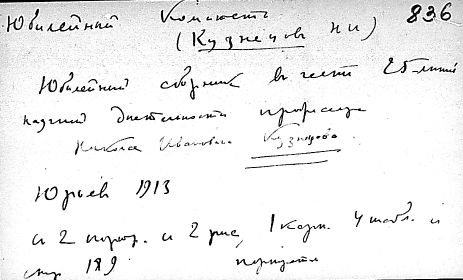 Юбилейный Комитет 836
(Кузнецов НИ)
Юбилейный сборник в честь 25-летия
научной деятельности профессора
Николая Ивановича Кузнецова.
Юрьев 1913
и 2 портр. и 2 рис, 1 карт. 4 табл. и
стр 189 портрет